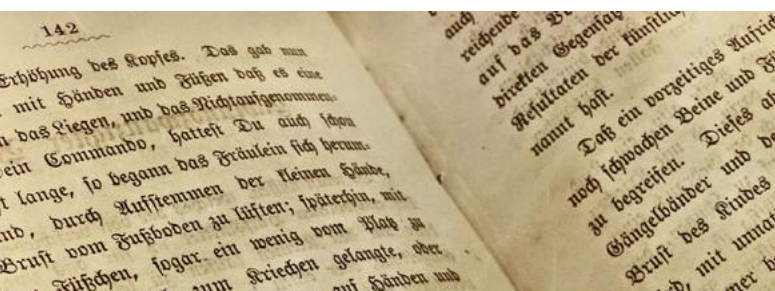 142
Erhöhung des Kopfes. Das gab nun
mit Händen und Füßen daß es eine
das Liegen, und das Nichtaufgenommen-
ein Commando, hattest Du auch schon
lange, so begann das Fräulein sich herum-
durch Aufstemmen der kleinen Hände,
Brust vom Fußboden zu lüften; späterhin, mit
Füßchen, sogar ein wenig vom Platz zu
zum Kriechen gelangte, oder
auf Händen und
auch
reichende
auf das
direkten Gegensatz
Resultaten der künstlic
nannt hast.
Daß ein vorzeitiges Aufrich
noch schwachen Beine und
zu begreifen. Dieses
Gängelbänder und
Brust des Kindes
mit